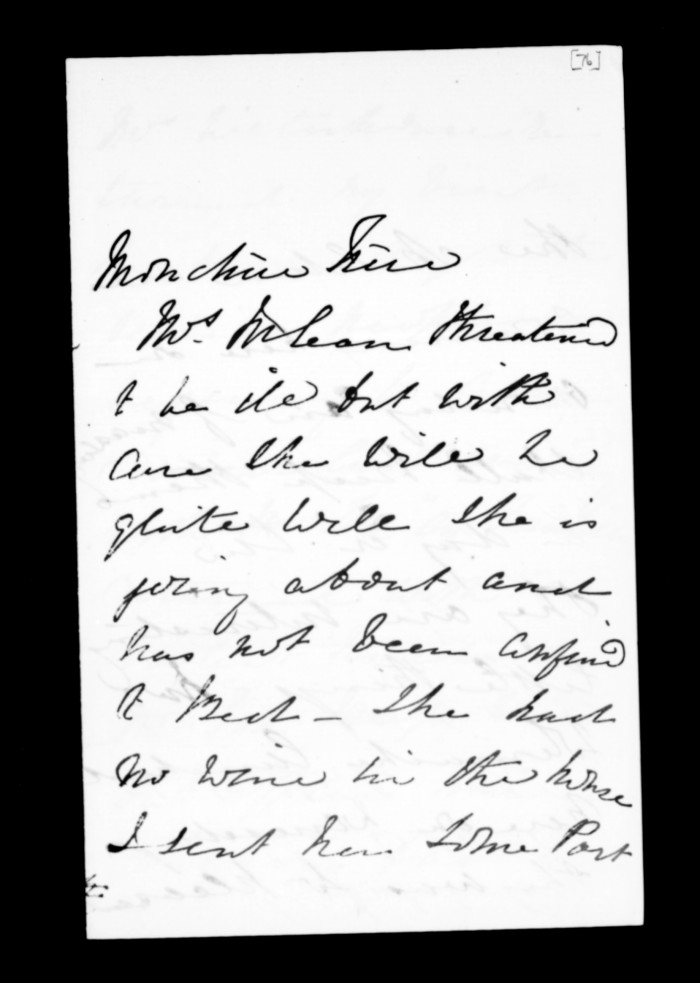 [76]
Mon chère Frère
Mrs. McLean threatened
t be ill but with
care she will be
quite well she is
going about and
has not been confined
t Bed - She had
no wine in the house
I sent her some Port